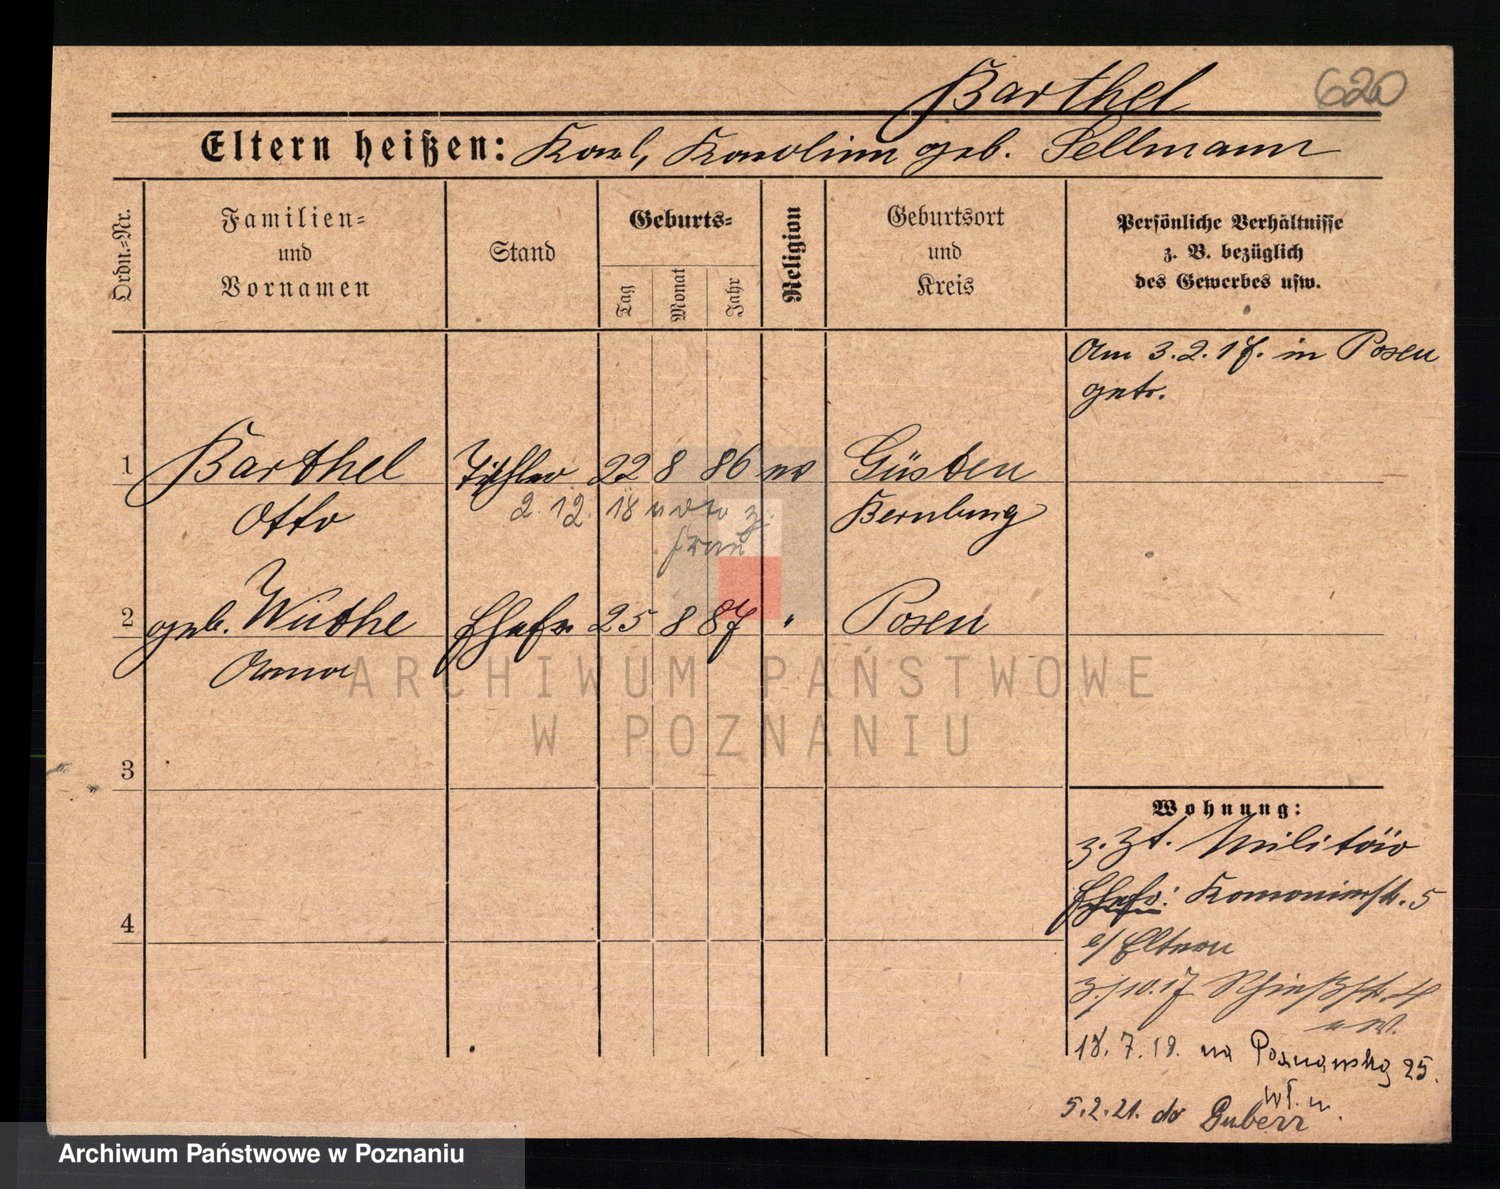 Barthel 620
Eltern heißen: Karl, Karolina geb. Sellmann
Ordn.-Nr.
Familien-
und
Vornamen
Stand
Geburts-
Tag
Monat
Jahr
Religion
Geburtsort
und
Kreis
Persönliche Verhältnisse
z. B. bezüglich
des Gewerbes usw.
Am 3.2.17. in Posen
getr.
1 Barthel Tischler 22 8 86 ev Güsten
Otto Bernburg
2.12.18 z.
Frau
2 geb. Wuthe Ehefr. 25 8 87 " Posen
Anna
ARCHIWUM PAŃSTWOWE
W POZNANIU
3
4
Wohnung:
z. Zt. Militär
Ehefr: 5
b/ Eltern
3./10.17 Schießstr. 4
18.7.19. na Poznańską 25.
wł. m.
5.2.21. do Guben
Archiwum Państwowe w Poznaniu